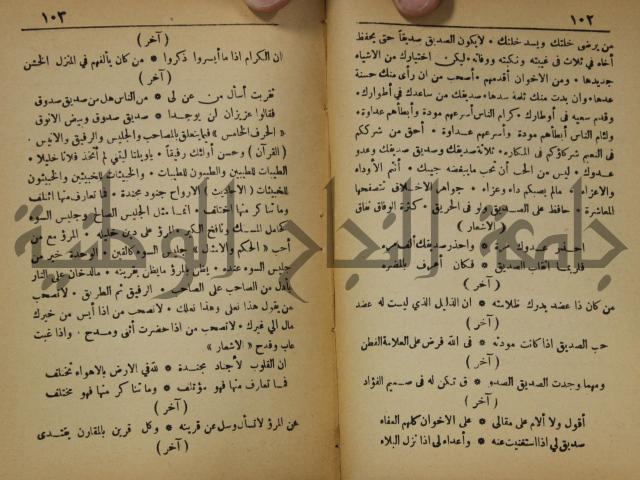 ١٠٢
من يرضى خلتك ويسد خلتك ٠ لا يكون الصديق صديقاً حتى يحفظ
أخاه في ثلاث في غيبته ونكبته ووفاته ٠ ليكن اختيارك من الاشياء
جديدها ٠ ومن الاخوان أقدمهم ٠ أصحب من ان رأى منك حسنة
عدها ٠ وان بدت منك ثلمة سدها ٠ صديقك من ساعدك في أطوارك ٠
وقدم سعيه في أوطارك ٠ كرام الناس أسرعهم مودة وأبطأهم عداوة ٠
ولئام الناس أبطأهم مودة ٠ وأسرعهم عداوة ٠ أحق من شركك
في النعيم شركاؤكم في المكاره ٠ ثلاثة صديقك وصديق صديقك وعدو
عدوك ٠ ليس من الحب أن تحب ما يبغضه حبيبك ٠ أنتم الأوداء
والاعزاء ٠ مالم يصبكم داء وعزاء ٠ جواهر الاخلاق تتصفحها
المعاشرة ٠ حافظ على الصديق ولو في الحريق ٠ كثرة الوفاق نفاق
( الاشعار )
احذر عدوك مرة ٠ واحذر صديقك ألف مره
فلربما انقلب الصديق ٠ فكان أعرف بالمضره
( آخر )
من كان ذا عضد يدرك ظلامته ٠ ان الذليل الذي ليست له عضد
( آخر )
حب الصديق اذا كانت مودته ٠ في الله فرض على العلامة الفطن
( آخر )
ومهما وجدت الصديق الصدو ٠ ق تكن له في صميم الفؤاد
( آخر )
أقول ولا ألام على مقالى ٠ على الاخوان كلهم العفاء
صديق لي اذا استغنيت عنه ٠ وأعداء لى اذا نزل البلاء
١٠٣
( آخر )
ان الكرام اذا ما أيسروا ذكروا ٠ من كان يألفهم في المنزل الخشن
( آخر )
تغربت أسأل من عن لى ٠ من الناس هل من صديق صدوق
فقالوا عزيزان لن يوجدا ٠ صديق صدوق وبيض الانوق
« الحرف الخامس » فيما يتعلق بالمصاحب والجليس والرفيق والانيس ٠
( القرآن ) وحسن أولئك رفيقاً ٠ ياويلتا ليتني لم أتخذ فلانا خليلا ٠
الطيبات للطيبين والطيبون للطيبات ٠ والخبيثات للخبيثين والخبيثون
للخبيثات ( الأحاديث ) الارواح جنود مجندة ٠ فما تعارف منها ائتلف
وما تناكر منها اختلف ٠ انما مثل الجليس الصالح وجليس السوء
كحامل المسك ونافخ الكير ٠ المرؤ على دين خليله ٠ المرؤ مع من
أحب « الحكم والامثال » جليس السوء كالقين ٠ الوحدة خير من
جليس السوء عنده ٠ يظن بالمرؤ مايظن بقرينه ٠ مالدخان على النار
بأدل من الصاحب على الصاحب ٠ الرفيق ثم الطريق ٠ لا تصحب
من يقول هذا نعلى وهذا نعلك ٠ لا تصحب من اذا أيس من خيرك
مال الي غيرك ٠ لا تصحب من اذا حضرت أثنى ومدح ٠ واذا غبت
عاب وقدح « الاشعار »
ان القلوب لأجناد مجندة ٠ لله في الارض بالاهواء تختلف
فما تعارف منها فهو مؤتلف ٠ وما تناكر منها فهو مختلف
( آخر )
عن المرؤ لا تسأل وسل عن قرينه ٠ وكل قرين بالمقارن يقتدى
( آخر )
جامعة النجاح الوطنية